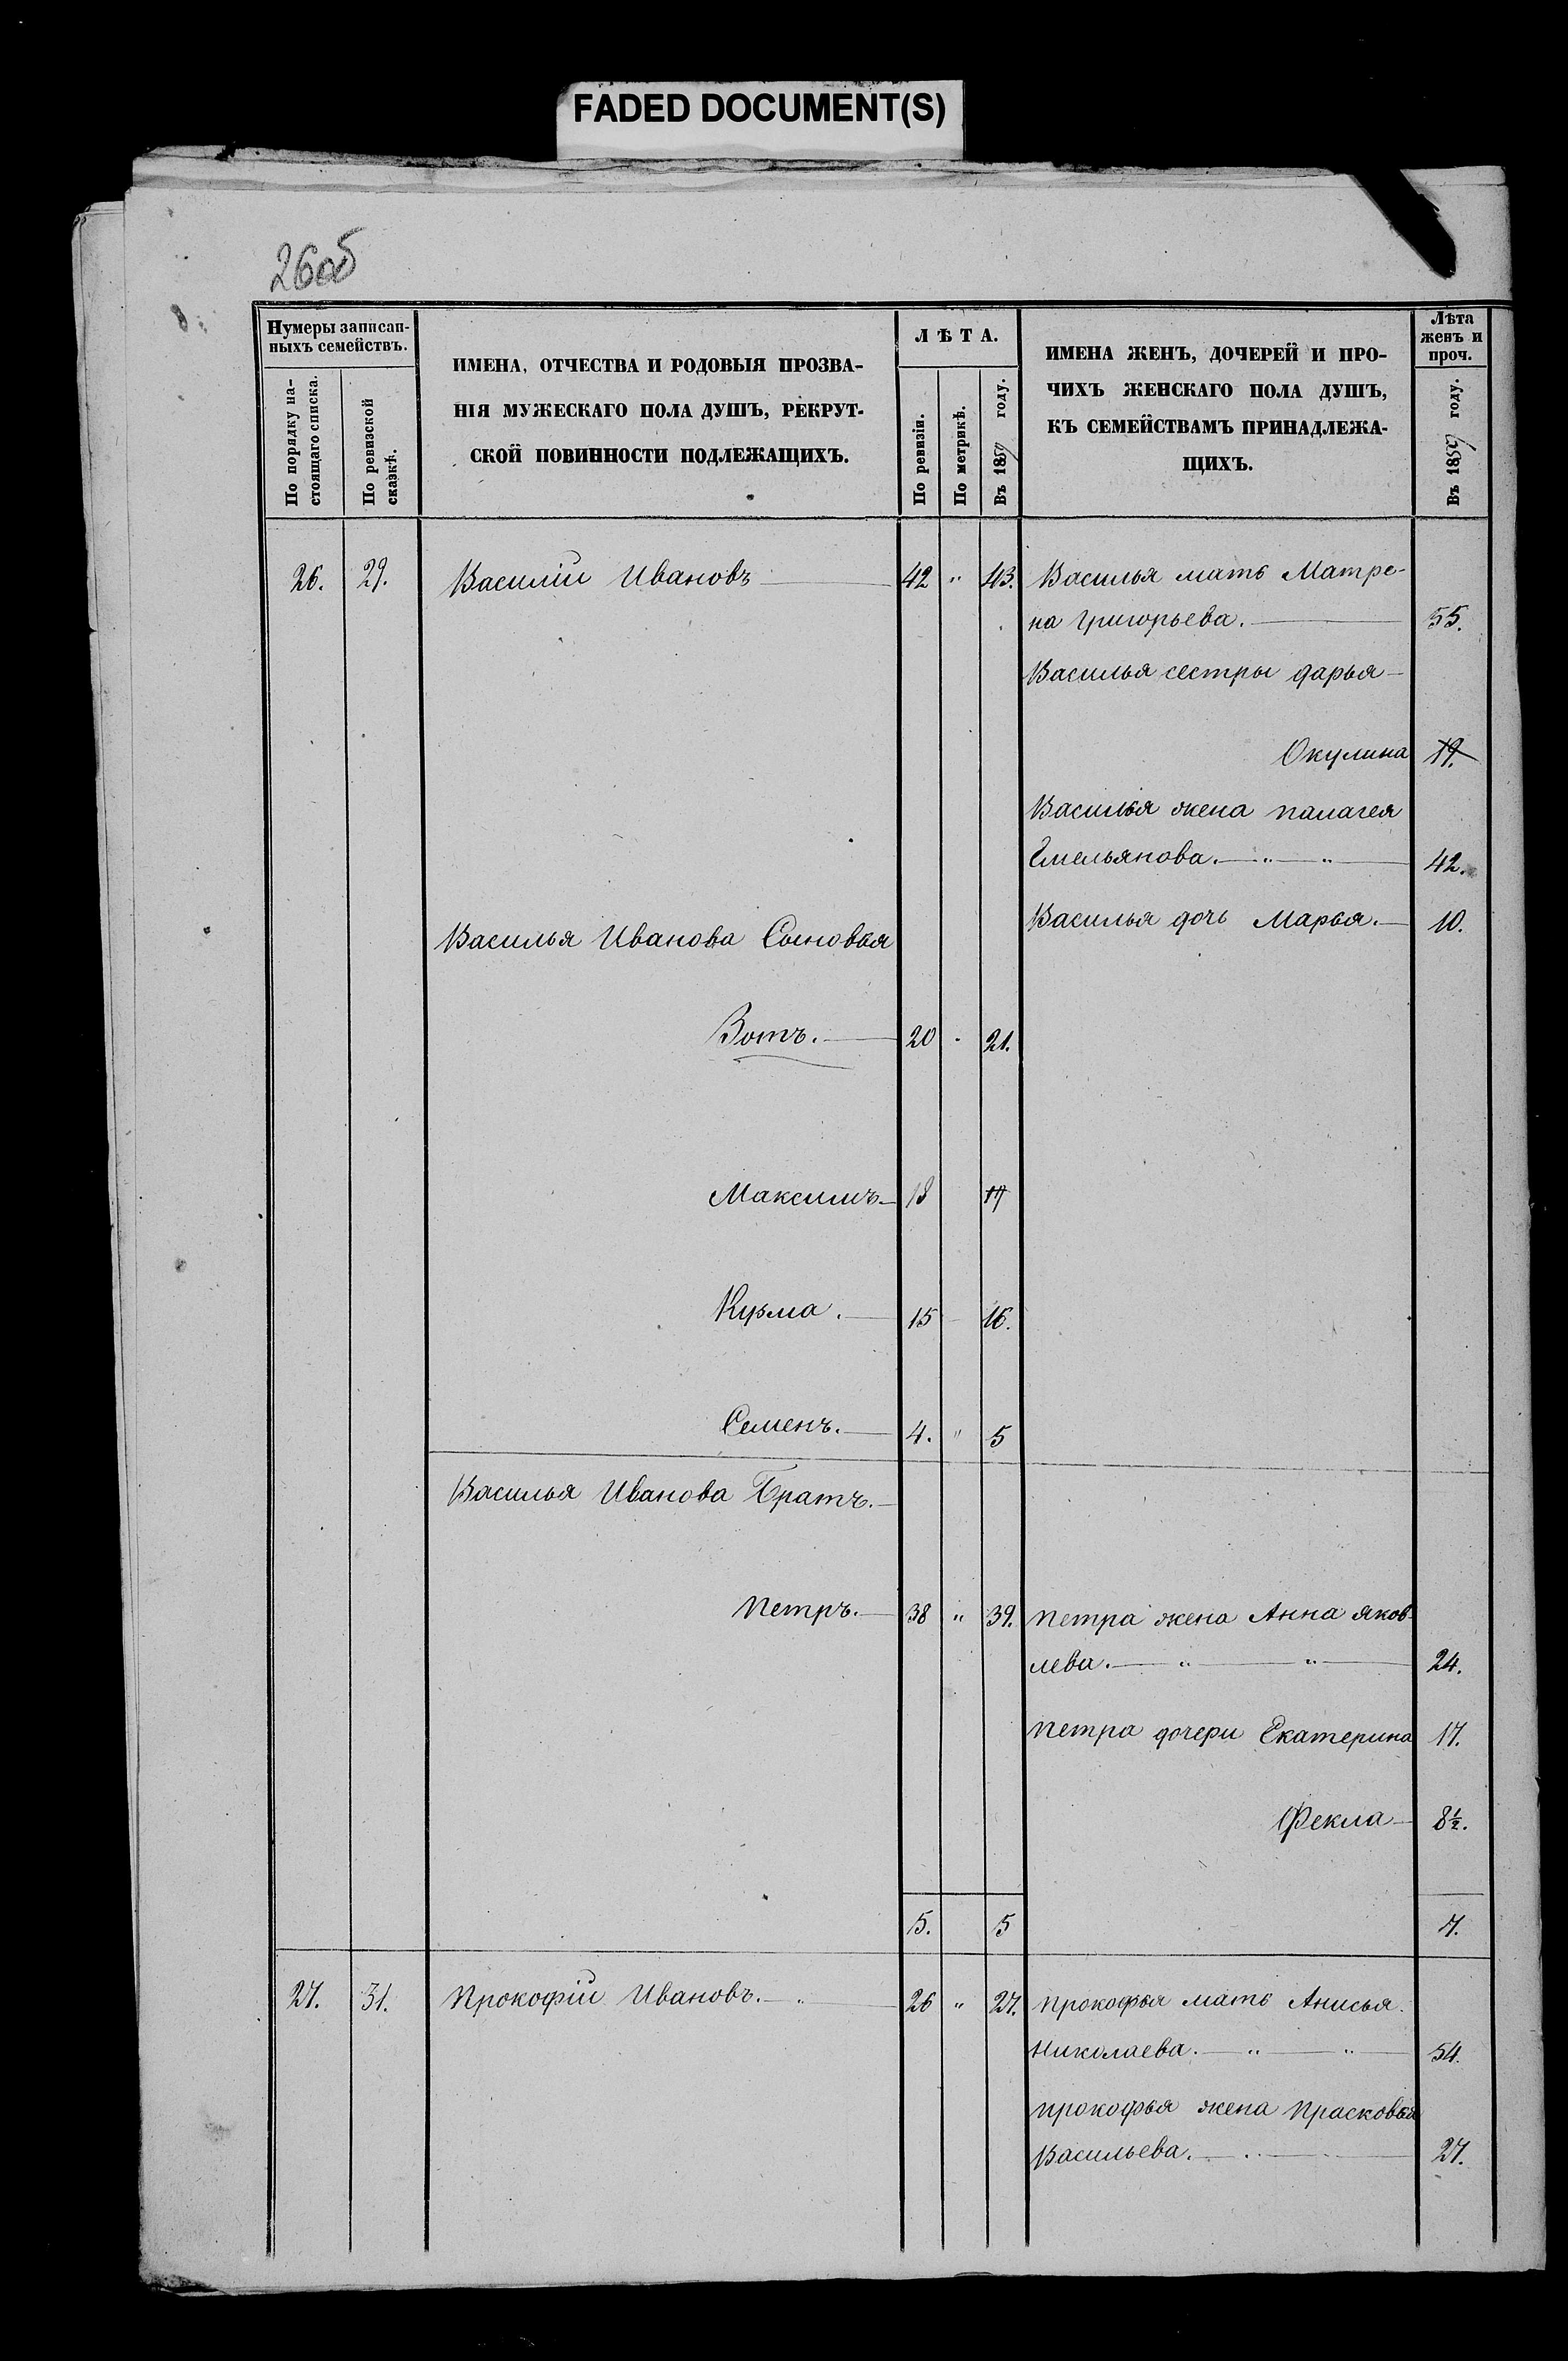 FADED DOCUMENT(S)
26об
Нумеры записан-
ныхъ семействъ.
По порядку на-
стоящаго списка.
По ревизской
сказкѣ.
ИМЕНА, ОТЧЕСТВА И РОДОВЫЯ ПРОЗВА-
НІЯ МУЖЕСКАГО ПОЛА ДУШЪ, РЕКРУТ-
СКОЙ ПОВИННОСТИ ПОДЛЕЖАЩИХЪ.
ЛѢТА.
По ревизіи.
По метрикѣ.
Въ 1859 году.
ИМЕНА ЖЕНЪ, ДОЧЕРЕЙ И ПРО-
ЧИХЪ ЖЕНСКАГО ПОЛА ДУШЪ,
КЪ СЕМЕЙСТВАМЪ ПРИНАДЛЕЖА-
ЩИХЪ.
Лѣта
женъ и
проч.
Въ 1859 году.
26. 29. Василій Ивановъ 42 " 43. Василья мать Матре-
на Григорьева. 55.
Василья сестры Дарья
Окулина 19.
Василья жена Палагея
Емельянова. " " 42.
Василья дочь Марья. 10.
Василья Иванова Сыновья
Зотъ. 20 " 21.
Максимъ 18 19
Кузма. 15 16.
Семенъ. 4. " 5
Василья Иванова Братъ.
Петръ. 38 " 39. Петра жена Анна Яков-
лева. " " 24.
Петра дочери Екатерина 17.
Фекла 8½.
5. 5 7.
27. 31. Прокофій Ивановъ. " 26 " 27. Прокофья мать Анисья
Николаева. " " 54.
Прокофья жена Прасковья
Васильева. 27.